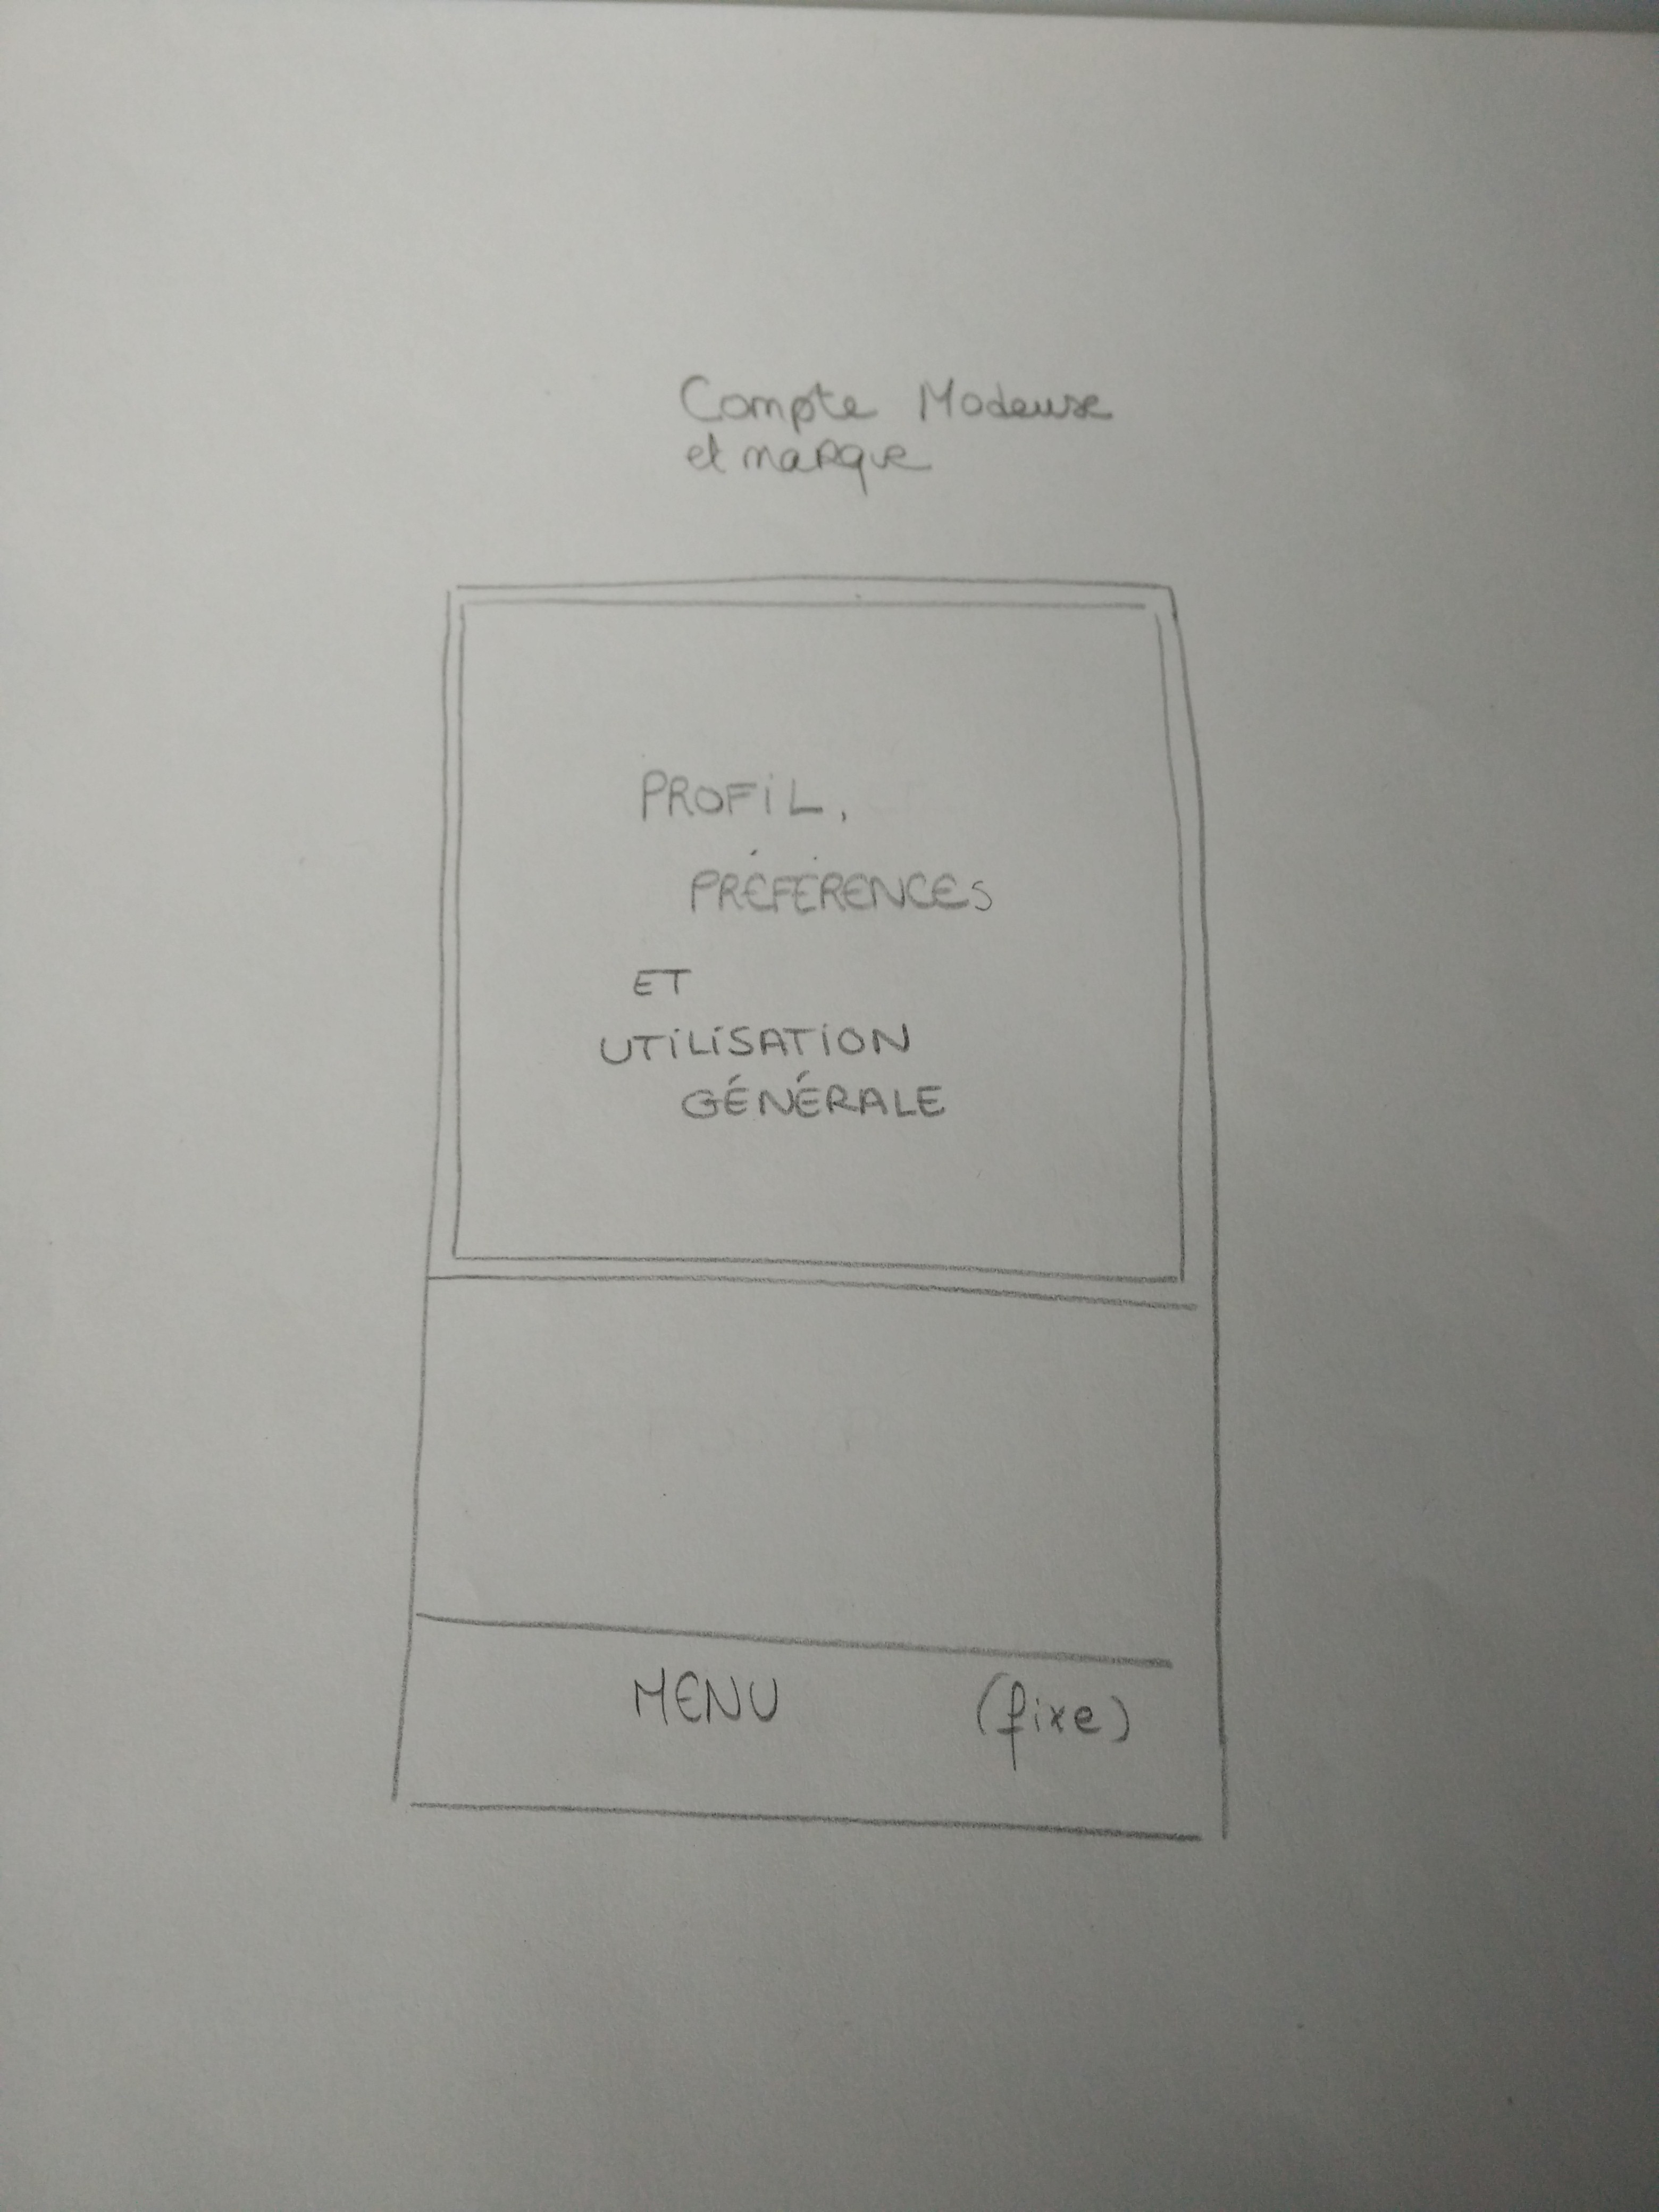 Compte Modeuse
et marque
PROFIL,
PRÉFÉRENCES
ET
UTILISATION
GÉNÉRALE
MENU (fixe)